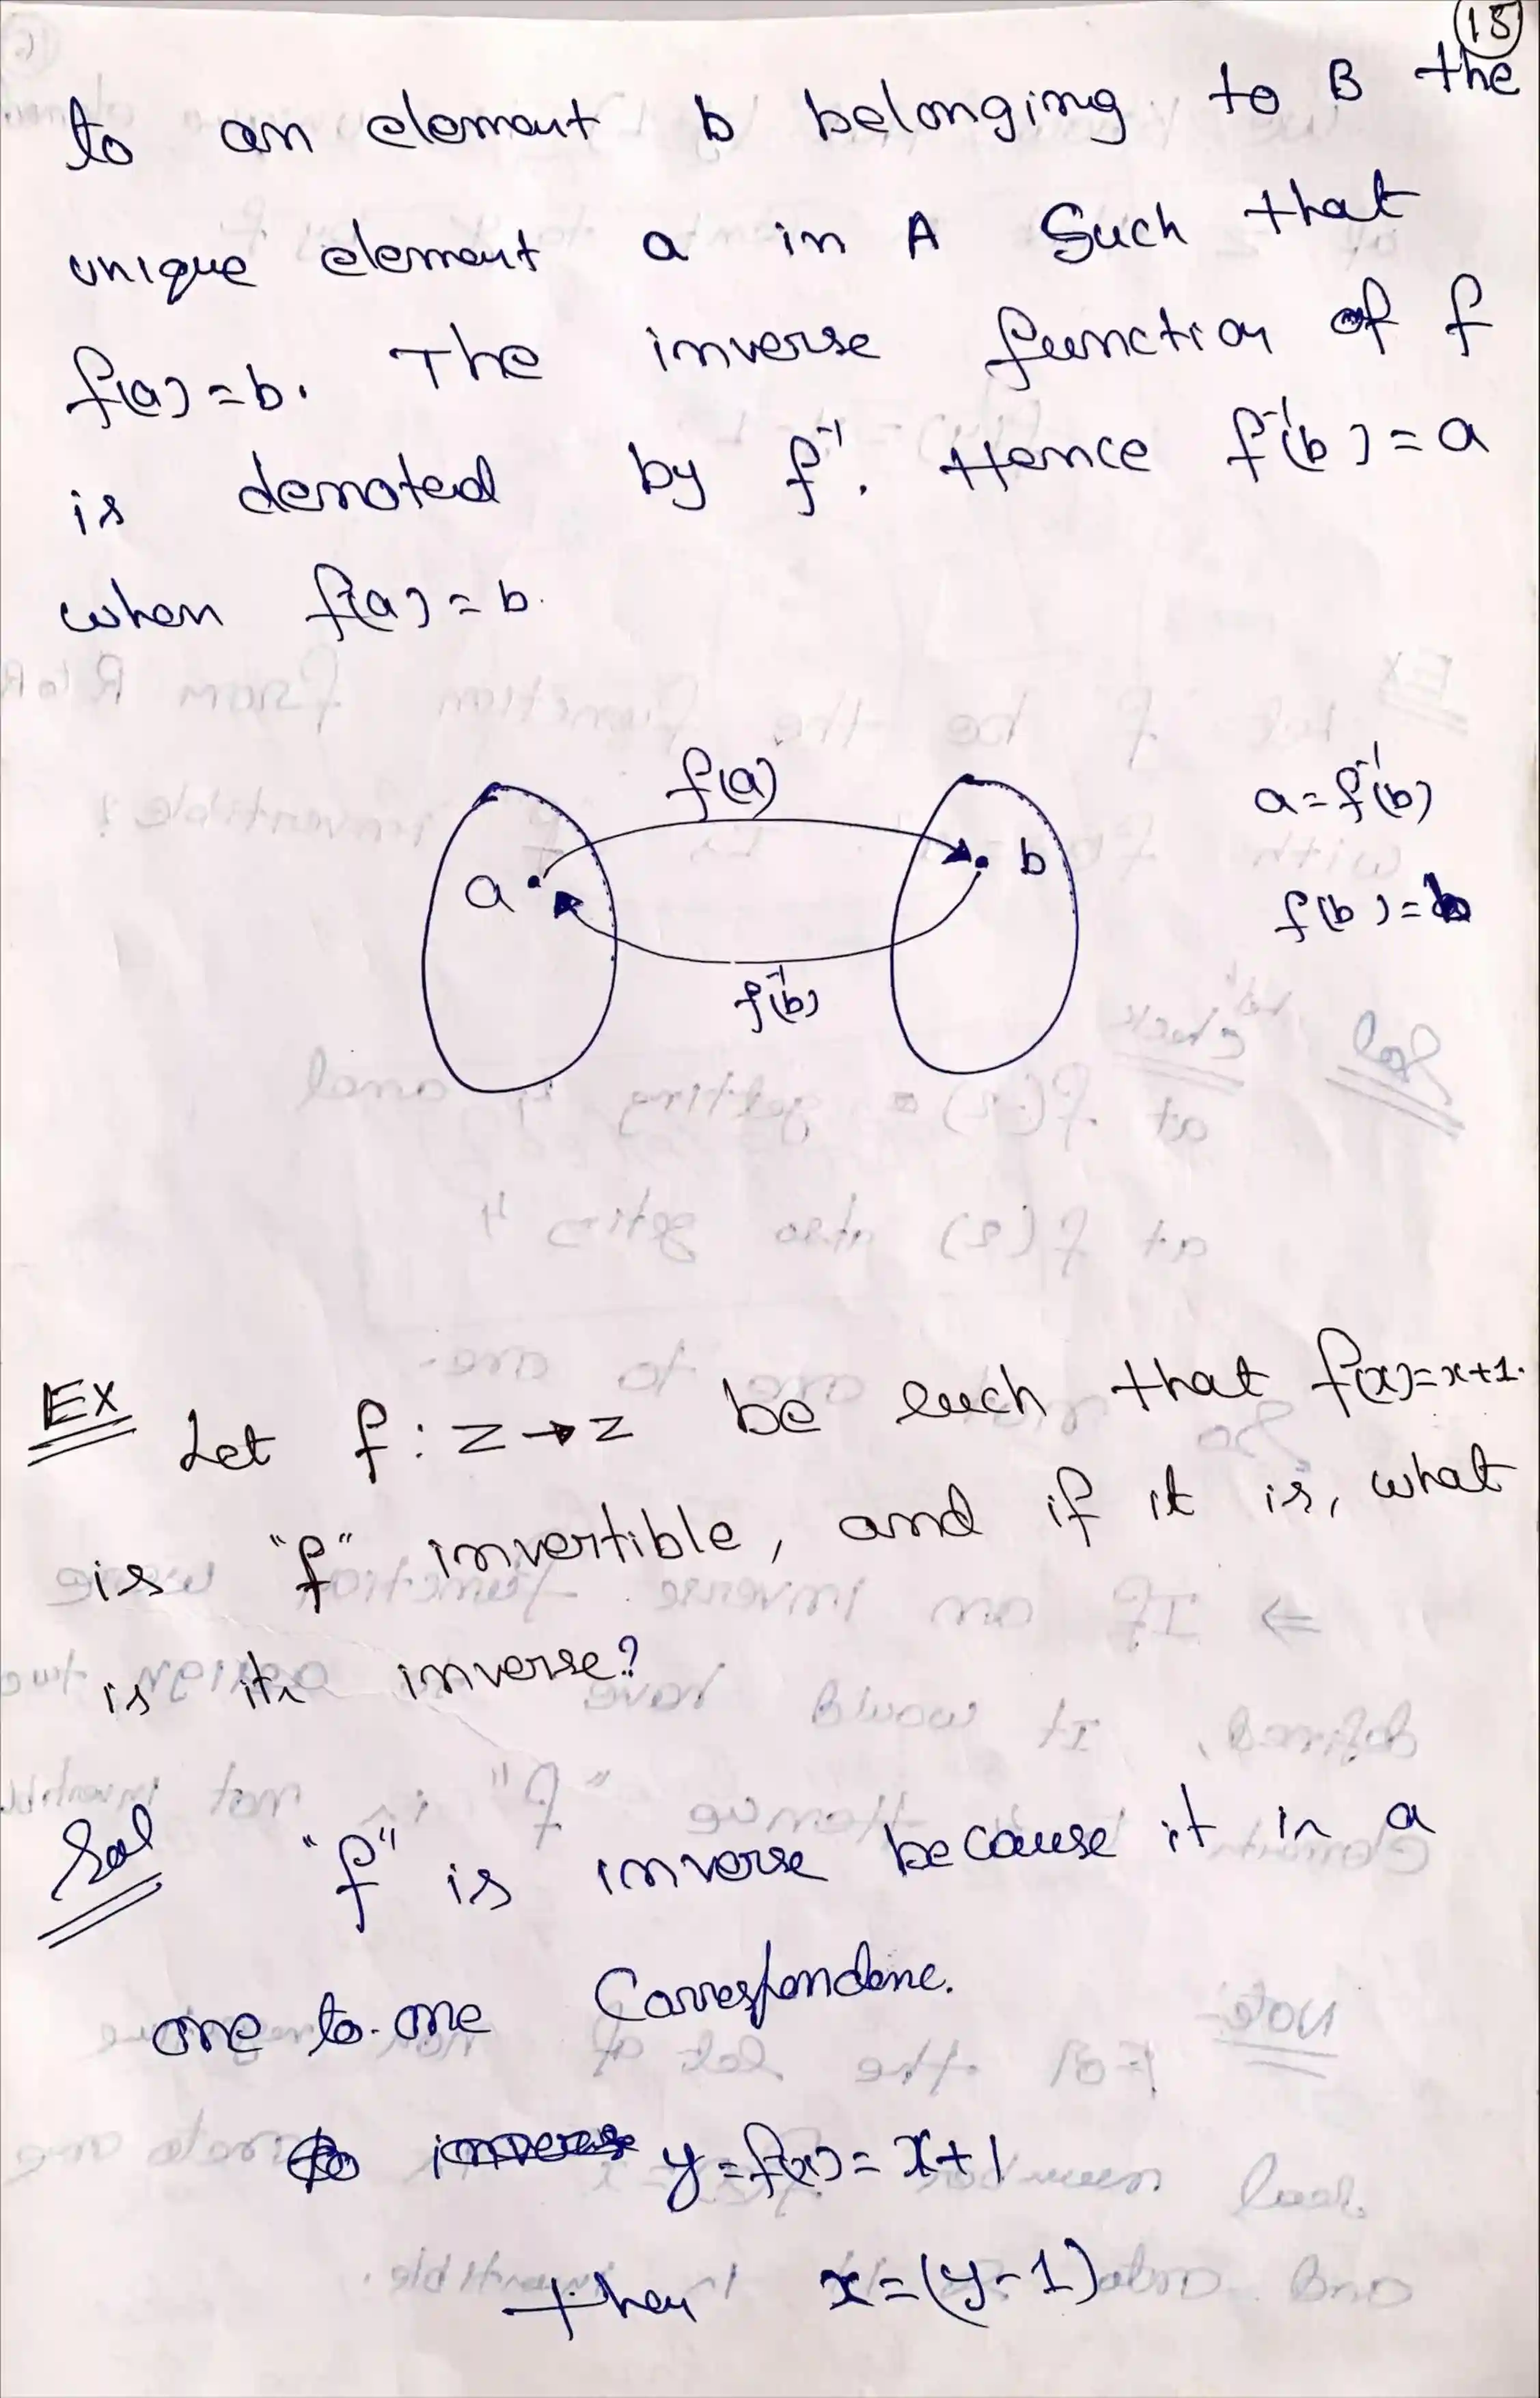 15
to an element b belonging to B the
unique element a in A such that
f(a) = b. The inverse function of f
is denoted by f⁻¹. Hence f⁻¹(b) = a
when f(a) = b.
f(a)
a = f⁻¹(b)
a
b
f(b) = b
f⁻¹(b)
Ex
Let f : Z → Z be such that f(x) = x+1.
is "f" invertible, and if it is, what
is its inverse?
Sol
"f" is inverse because it is a
one to-one Correspondenc.
to inverse y = f(x) = x+1
then x = (y-1)